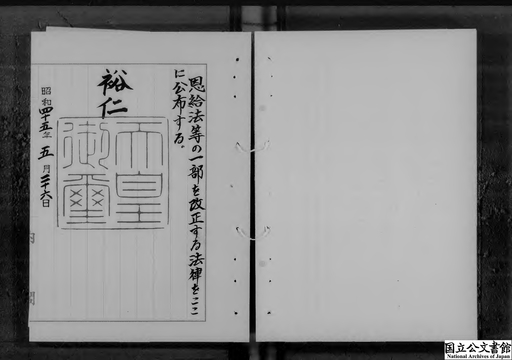 恩給法等の一部を改正する法律をここ
に公布する。
裕仁
天皇
御璽
昭和四十五年五月二十六日
内閣
国立公文書館
National Archives of Japan